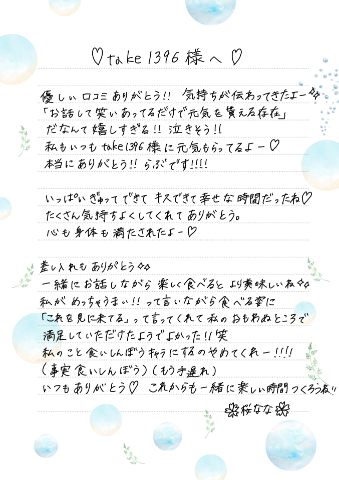 ♡take1396様へ♡
優しい口コミありがとう!! 気持ちが伝わってきたよー✧✧
「お話して笑いあってるだけで元気を貰える存在」
だなんて嬉しすぎる!! 泣きそう!!
私もいつもtake1396様に元気もらってるよー♡
本当にありがとう!! らぶです!!!!
いっぱいぎゅってできて キスできて幸せな時間だったね♡
たくさん気持ちよくしてくれてありがとう。
心も身体も満たされたよー♡
差し入れもありがとう✧✧
一緒にお話しながら 楽しく食べると より美味しいね✧✧
私が めっちゃうまい!! って言いながら食べる姿に
「これを見に来てる」って言ってくれて 私のおもわぬところで
満足していただけたようでよかった!!笑
私のこと食いしんぼうキャラにするのやめてくれー!!!!
(事実 食いしんぼう)(もう手遅れ)
いつもありがとう♡ これからも一緒に楽しい時間つくろうね!!
❀桜なな❀